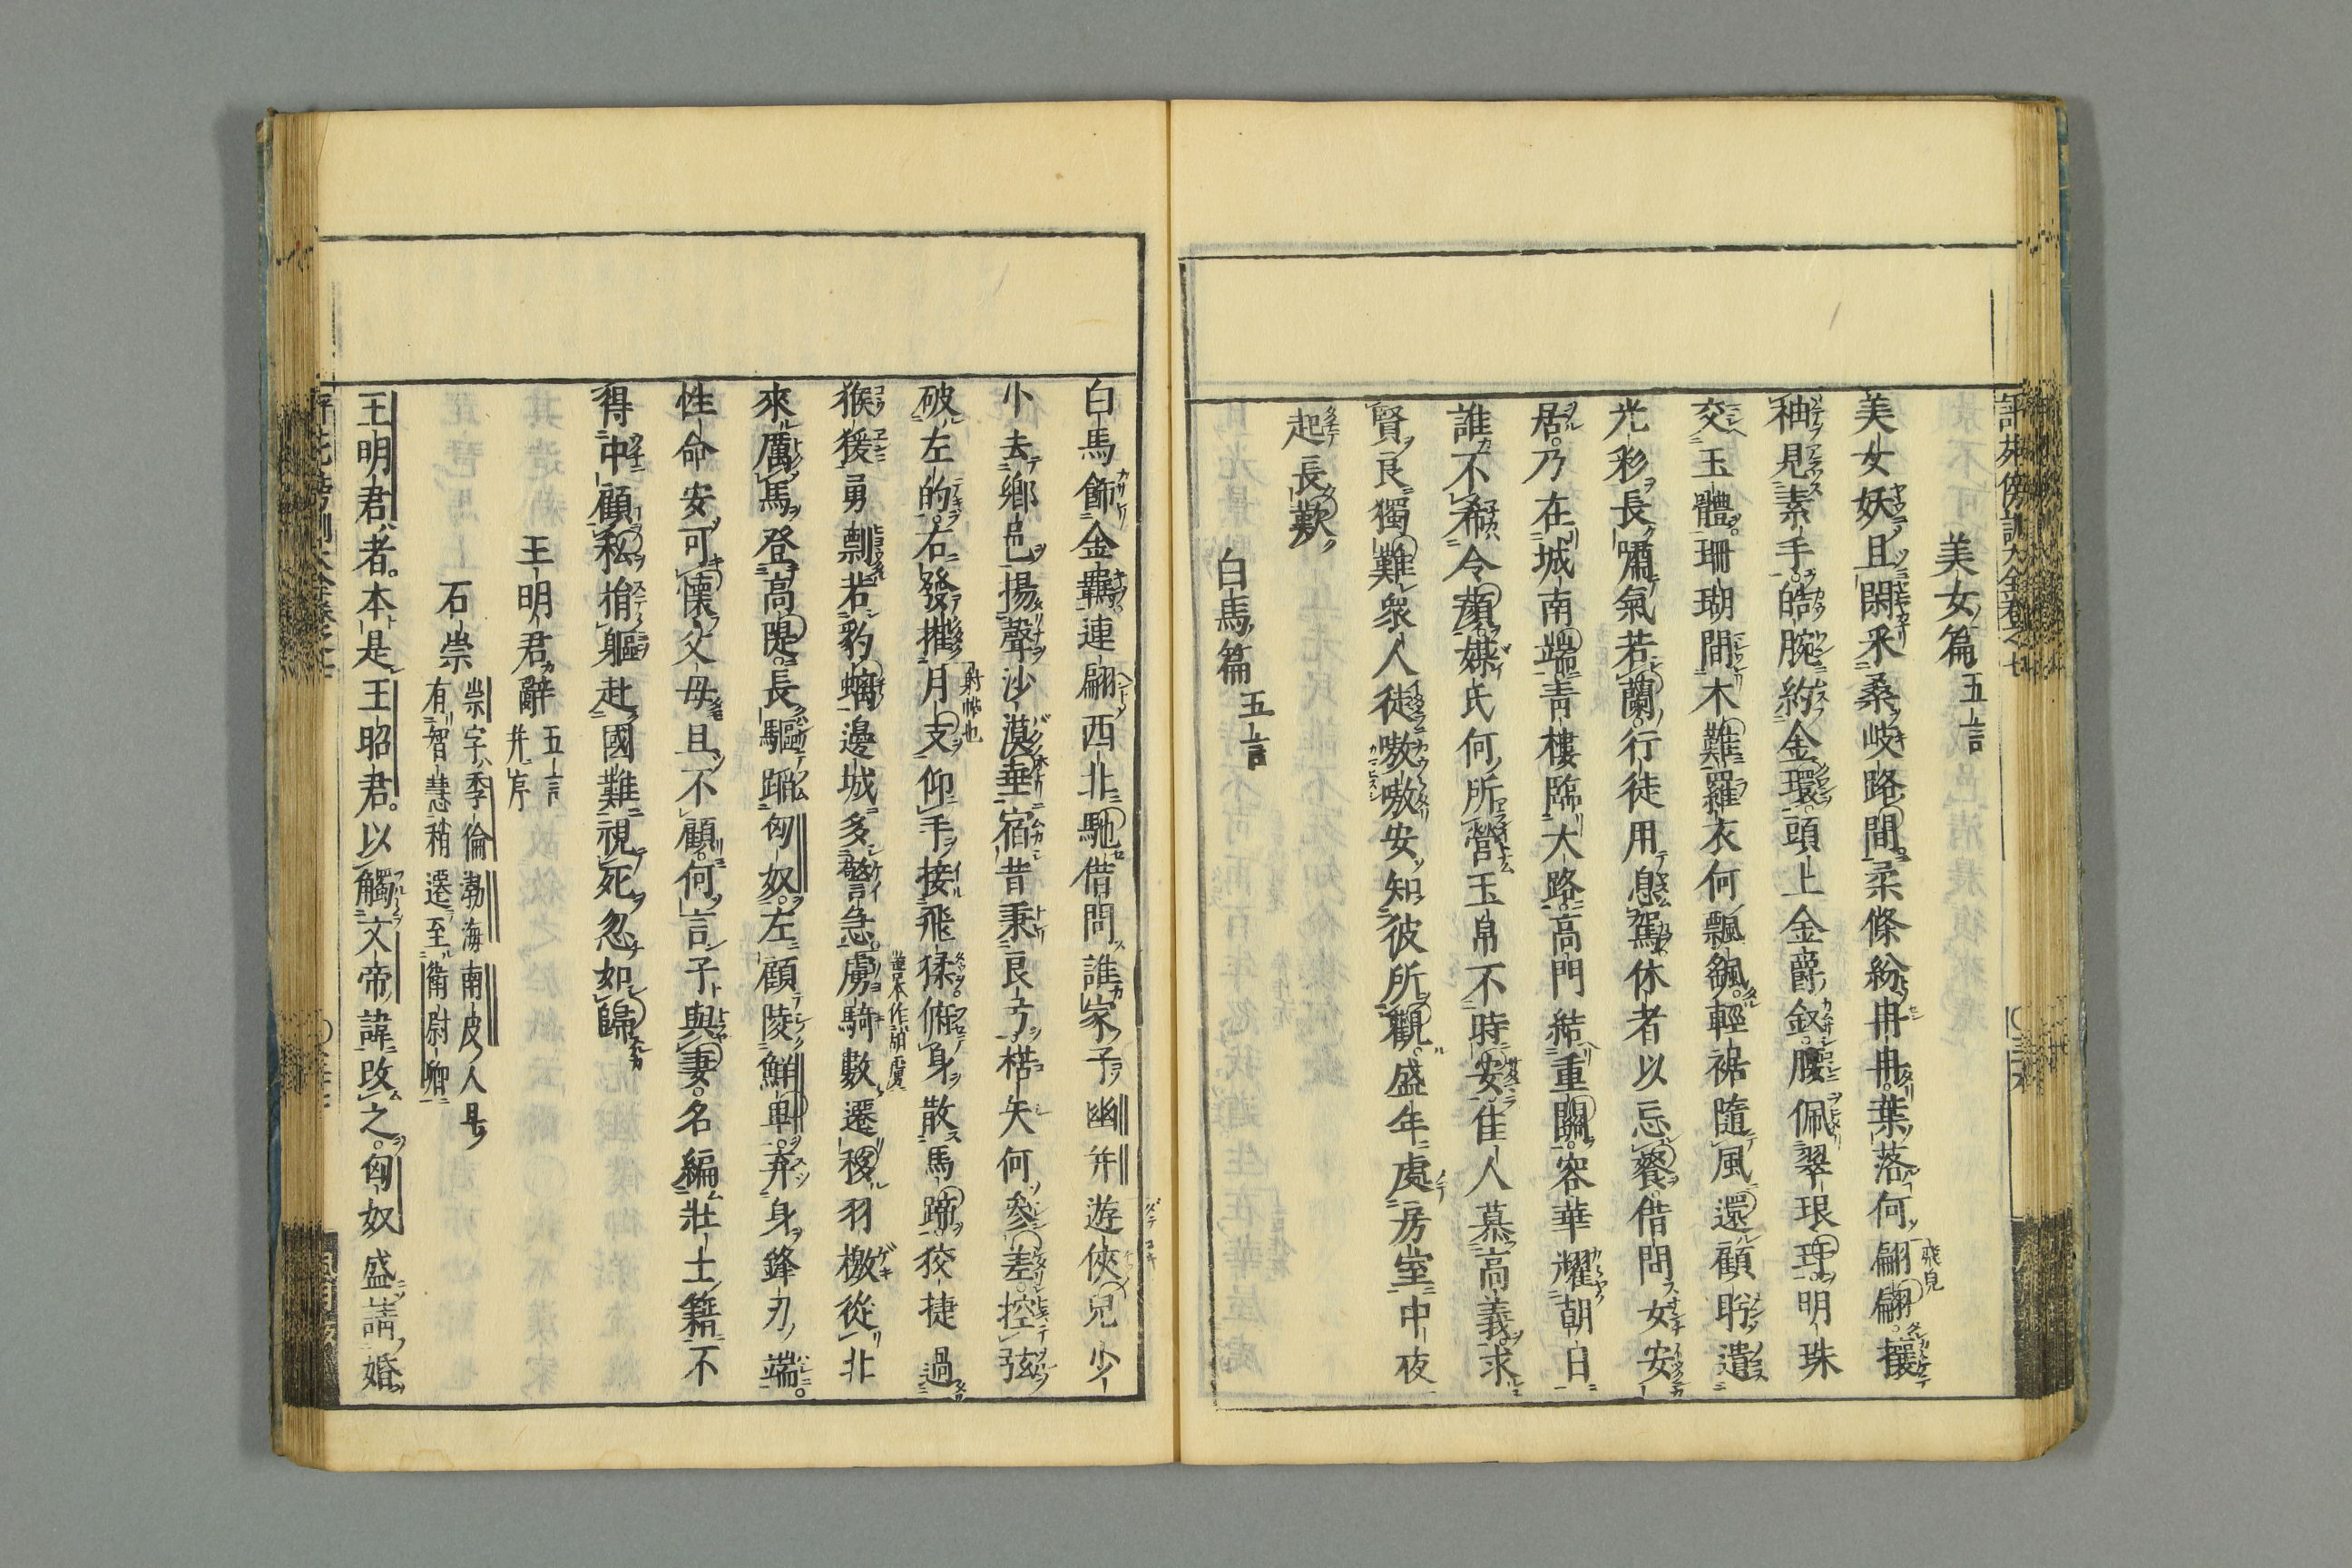 美女篇 五言
美女妖且閑采桑岐路間柔條紛冉冉葉落何翩翩攘
袖見素手皓腕約金環頭上金爵釵腰佩翠琅玕明珠
交玉體珊瑚間木難羅衣何飄飖輕裾隨風還顧眄遺
光彩長嘯氣若蘭行徒用息駕休者以忘餐借問女安
居乃在城南端青樓臨大路高門結重關容華耀朝日
誰不希令顏媒氏何所營玉帛不時安佳人慕高義求
賢良獨難衆人徒嗷嗷安知彼所觀盛年處房室中夜
起長歎
白馬篇 五言
白馬飾金羈連翩西北馳借問誰家子幽并遊俠兒少
小去鄉邑揚聲沙漠垂宿昔秉良弓楛矢何參差控弦
破左的右發摧月支仰手接飛猱俯身散馬蹄狡捷過
猴猨勇剽若豹螭邊城多警急虜騎數遷移羽檄從北
來厲馬登高隄長驅蹈匈奴左顧陵鮮卑弃身鋒刃端
性命安可懷父母且不顧何言子與妻名編壯士籍不
得中顧私捐軀赴國難視死忽如歸
王明君辭 五言并序
石崇 崇字季倫渤海南皮人早
有智慧稍遷至衛尉卿
王明君者本是王昭君以觸文帝諱改之匈奴盛請婚